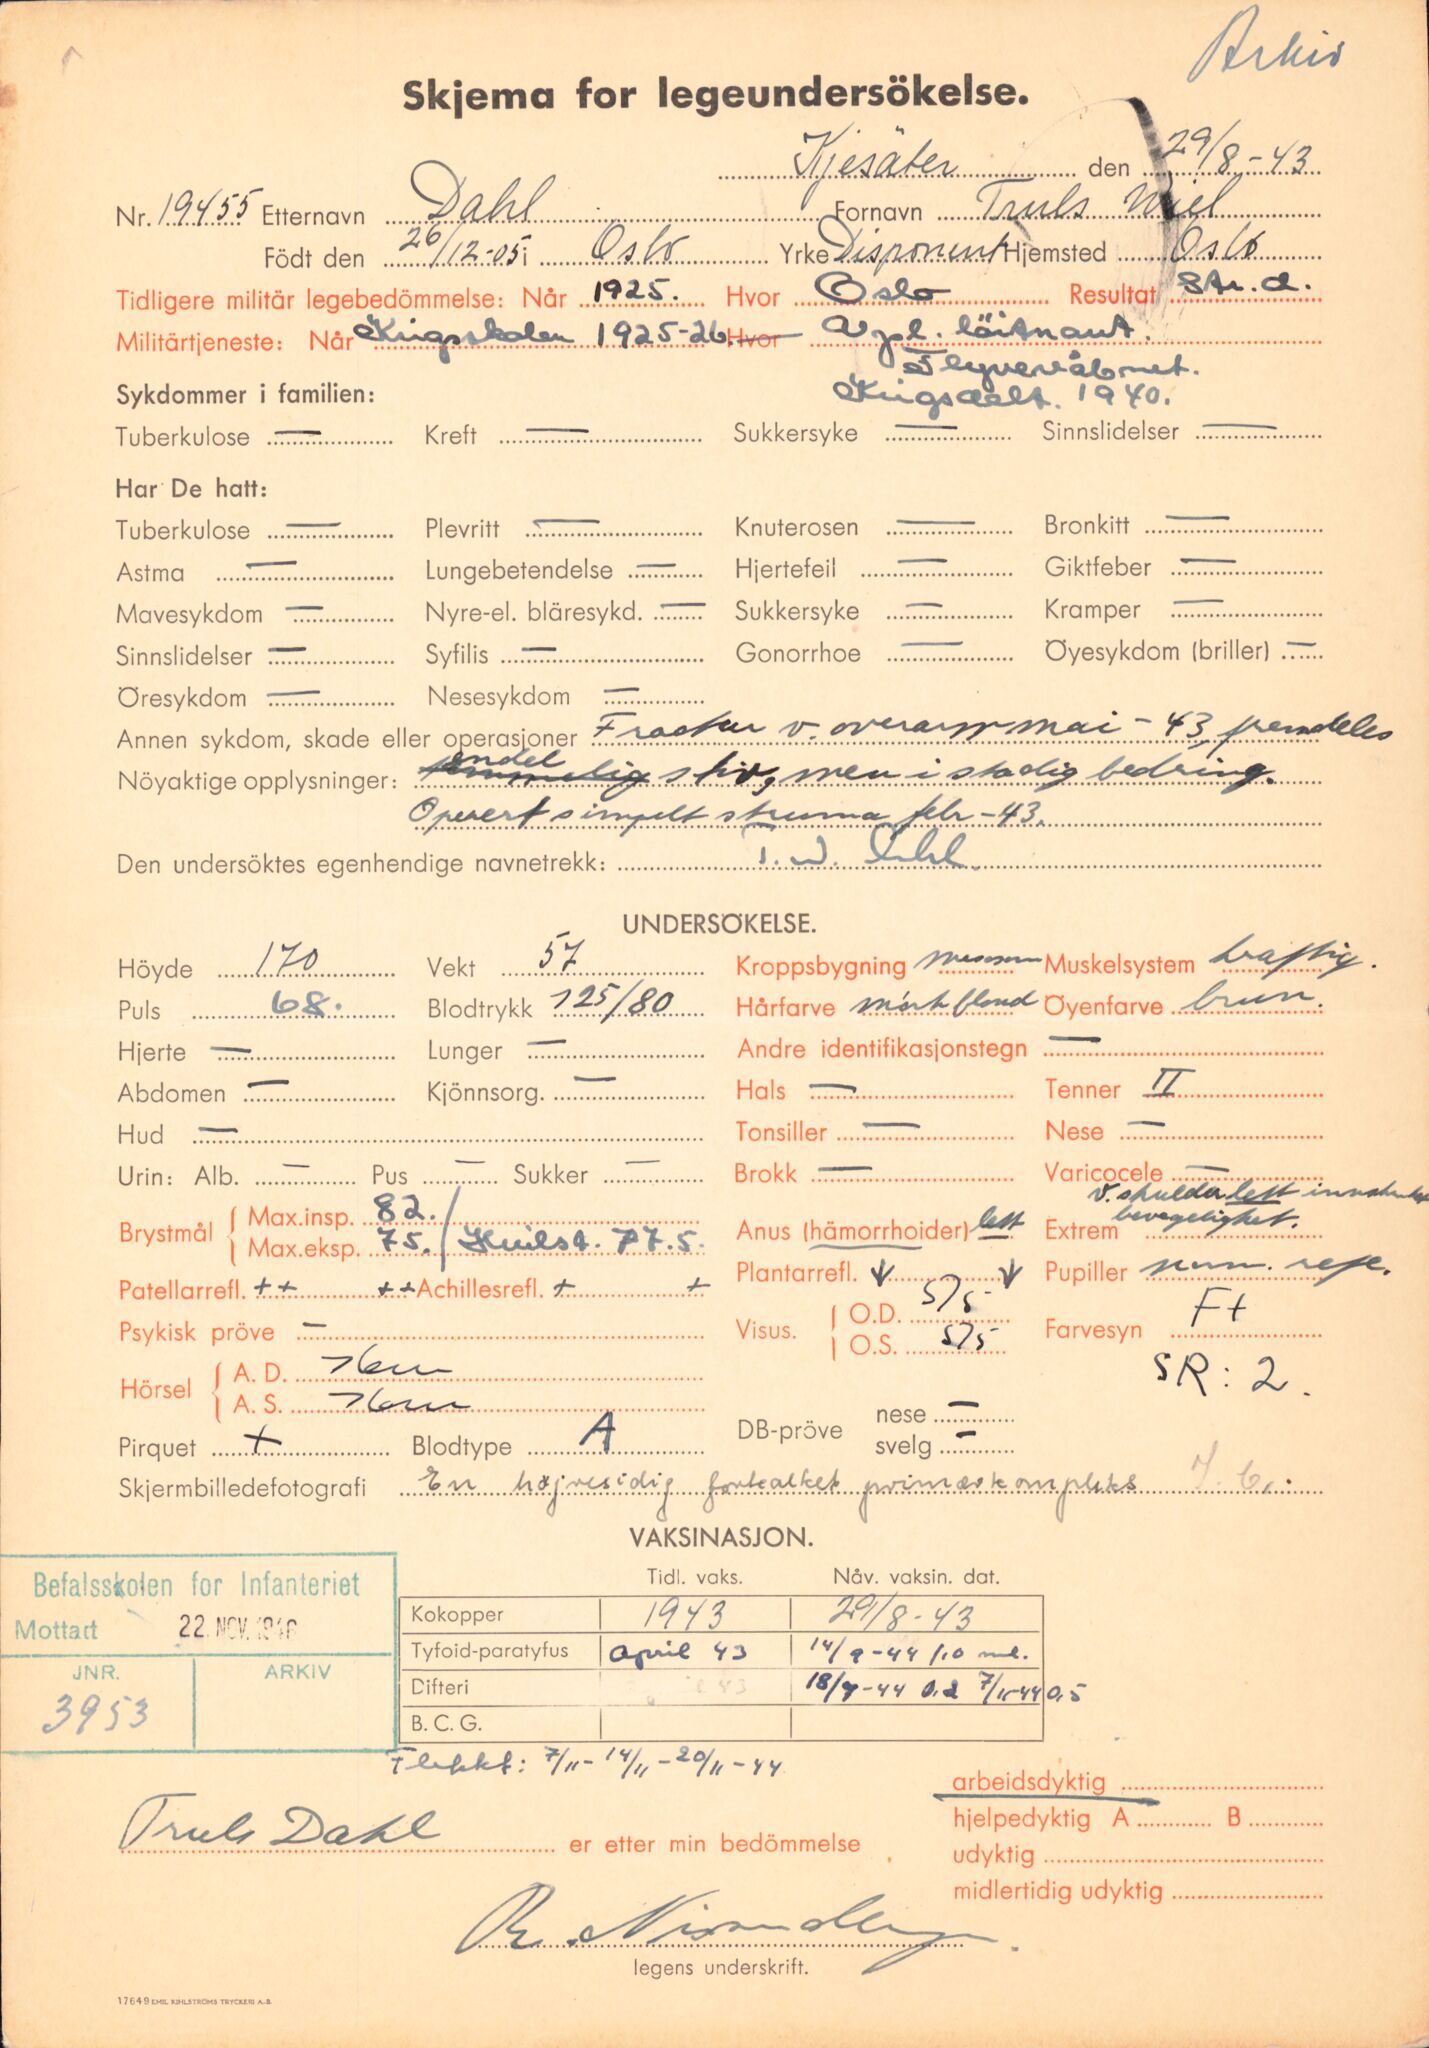 Arkiv
Skjema for legeundersökelse.
Kjesäter den 29/8-43
Nr. 19455 Etternavn Dahl Fornavn Truls Wiel
Födt den 26/12-05 i Oslo Yrke Disponent Hjemsted Oslo
Tidligere militär legebedömmelse: Når 1925. Hvor Oslo Resultat St.d.
Militärtjeneste: Når Krigsskolen 1925-26. Hvor Vpl. löitnant.
Flyvevåbnet.
Sykdommer i familien: Krigsdelt. 1940.
Tuberkulose — Kreft — Sukkersyke — Sinnslidelser —
Har De hatt:
Tuberkulose — Plevritt — Knuterosen — Bronkitt —
Astma — Lungebetendelse — Hjertefeil — Giktfeber —
Mavesykdom — Nyre-el. bläresykd. — Sukkersyke — Kramper —
Sinnslidelser — Syfilis — Gonorrhoe — Öyesykdom (briller) —
Öresykdom — Nesesykdom —
Annen sykdom, skade eller operasjoner Fractur v. overarm mai -43, fremdeles
Nöyaktige opplysninger: endel stiv, men i stadig bedring.
Operert simpelt struma febr -43.
Den undersöktes egenhendige navnetrekk: T. W. Dahl
UNDERSÖKELSE.
Höyde 170 Vekt 57 Kroppsbygning Muskelsystem kraftig.
Puls 68. Blodtrykk 125/80 Hårfarve mörk blond Öyenfarve brun.
Hjerte — Lunger — Andre identifikasjonstegn —
Abdomen — Kjönnsorg. — Hals — Tenner II
Hud — Tonsiller — Nese —
Urin: Alb. — Pus — Sukker — Brokk — Varicocele —
Brystmål Max.insp. 82. Anus (hämorrhoider) lett Extrem v. skulder lett innskrenket
Max.eksp. 75. / Hvilst. 77.5. bevegelighet.
Patellarrefl. ++ ++ Achillesrefl. + + Plantarrefl. ↓ ↓ Pupiller norm. refl.
Psykisk pröve — Visus. O.D. 5/5 Farvesyn F+
O.S. 5/5
Hörsel A. D. Norm SR: 2.
A. S. Norm
Pirquet + Blodtype A DB-pröve nese —
svelg —
Skjermbilledefotografi En höjresidig forkalket primærkompleks
VAKSINASJON.
Tidl. vaks. Nåv. vaksin. dat.
Kokopper 1943 29/8-43
Tyfoid-paratyfus April 43 14/9-44 1,0 ml.
Difteri 18/9-44 0,2 7/11-44 0,5
B. C. G.
Flekkt: 7/11- 14/11 -20/11-44
Befalsskolen for Infanteriet
Mottatt 22. NOV. 1946
JNR. ARKIV
3953
arbeidsdyktig
hjelpedyktig A B
Truls Dahl er etter min bedömmelse
udyktig
midlertidig udyktig
legens underskrift.
17649 EMIL KIHLSTRÖMS TRYCKERI A.-B.